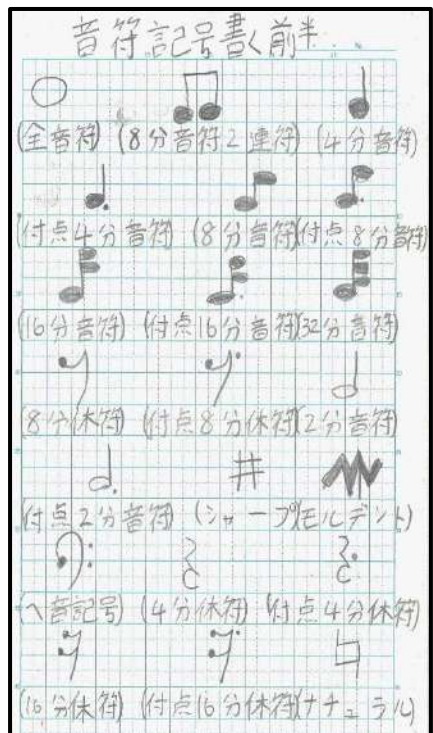 音符記号書く前半
(全音符) (8分音符2連符) (4分音符)
(付点4分音符) (8分音符)(付点8分音符)
(16分音符) (付点16分音符)(32分音符)
(8分休符) (付点8分休符)(2分音符)
付点2分音符) (シャープ)(モルデント)
(ヘ音記号) (4分休符) (付点4分休符)
(16分休符) (付点16分休符)(ナチュラル)